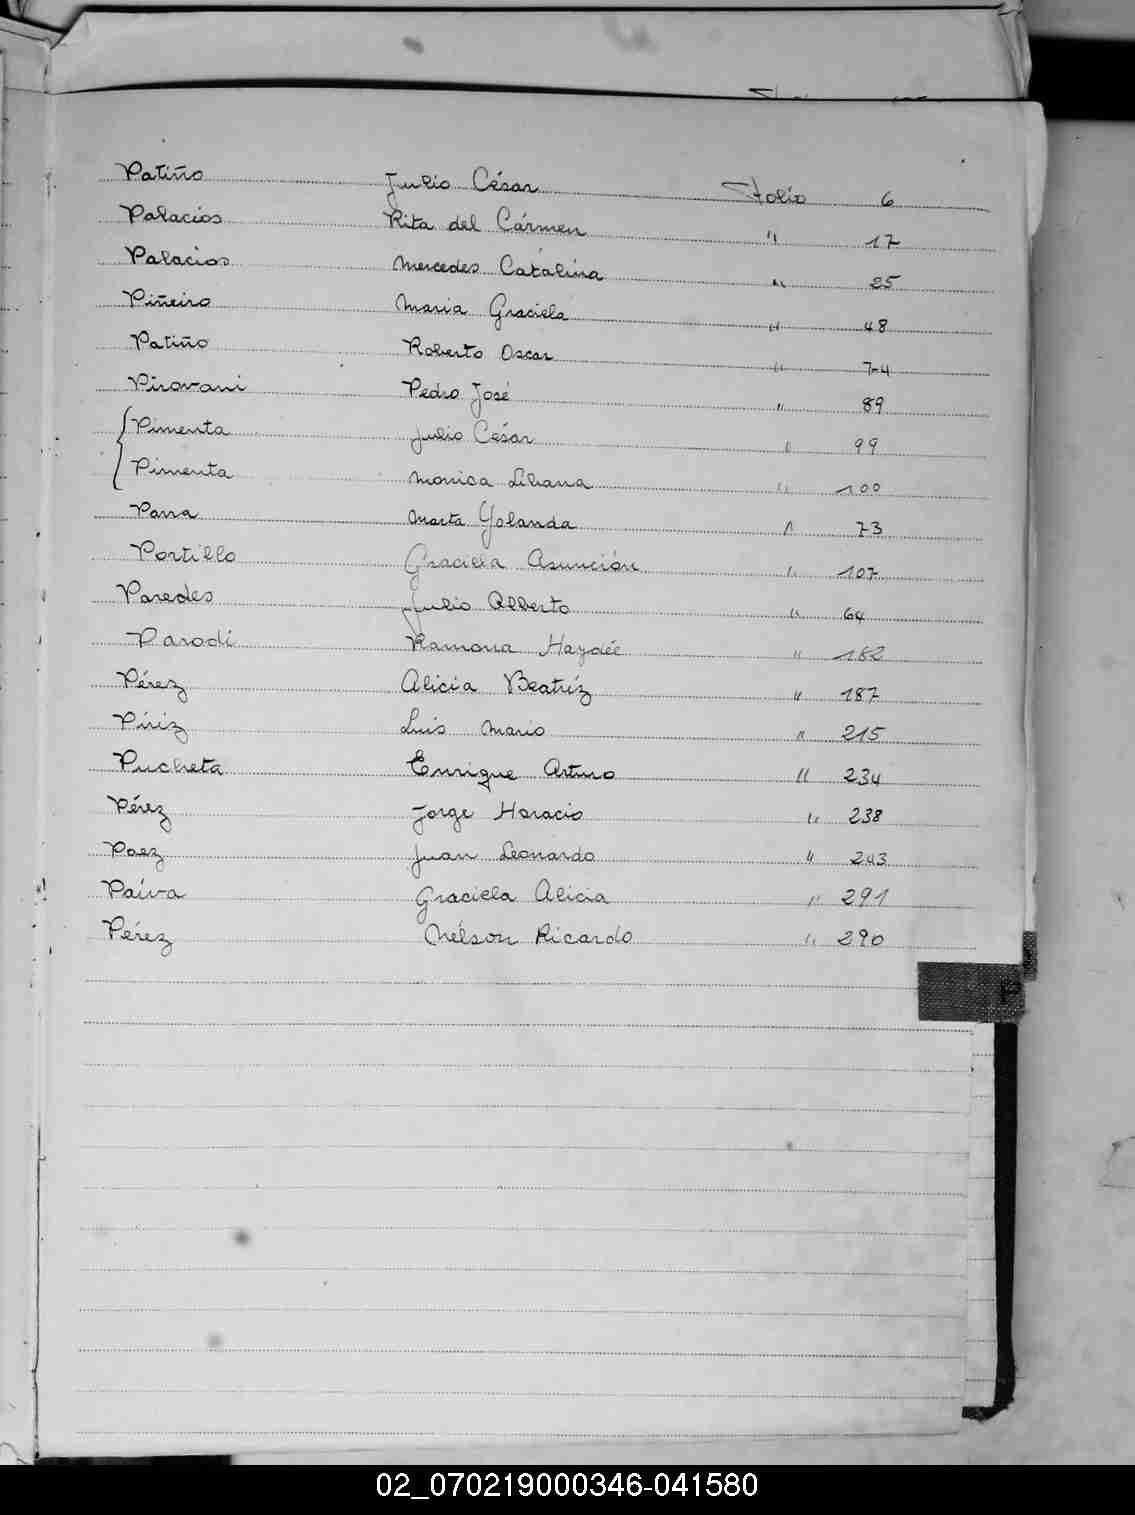 Patiño Julio César Folio 6
Palacios Rita del Cármen " 17
Palacios Mercedes Catalina " 25
Piñeiro Maria Graciela " 48
Patiño Roberto Oscar " 74
Pirovani Pedro José " 89
Pimenta Julio César " 99
Pimenta Monica Liliana " 100
Parra Marta Yolanda " 73
Portillo Graciela Asunción " 107
Paredes Julio Alberto " 64
Parodi Ramona Haydée " 182
Pérez Alicia Beatríz " 187
Píriz Luis Mario " 215
Pucheta Enrique Arturo " 234
Pérez Jorge Horacio " 238
Paez Juan Leonardo " 243
Paíva Graciela Alicia " 291
Pérez Nélson Ricardo " 290
P
02_070219000346-041580